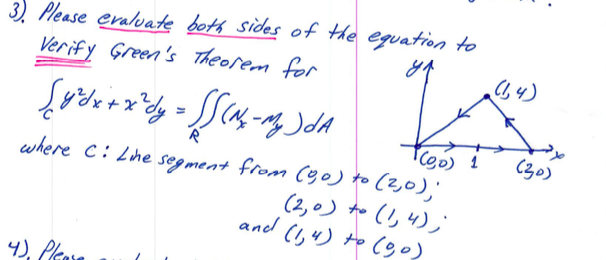 3). Please evaluate both sides of the equation to
Verify Green's Theorem for
∫_C y²dx + x²dy = ∬_R (N_x - M_y) dA
where C: Line segment from (0,0) to (2,0);
(2,0) to (1,4);
and (1,4) to (0,0)
y
(1,4)
(0,0) 1 (2,0) x
4). Please